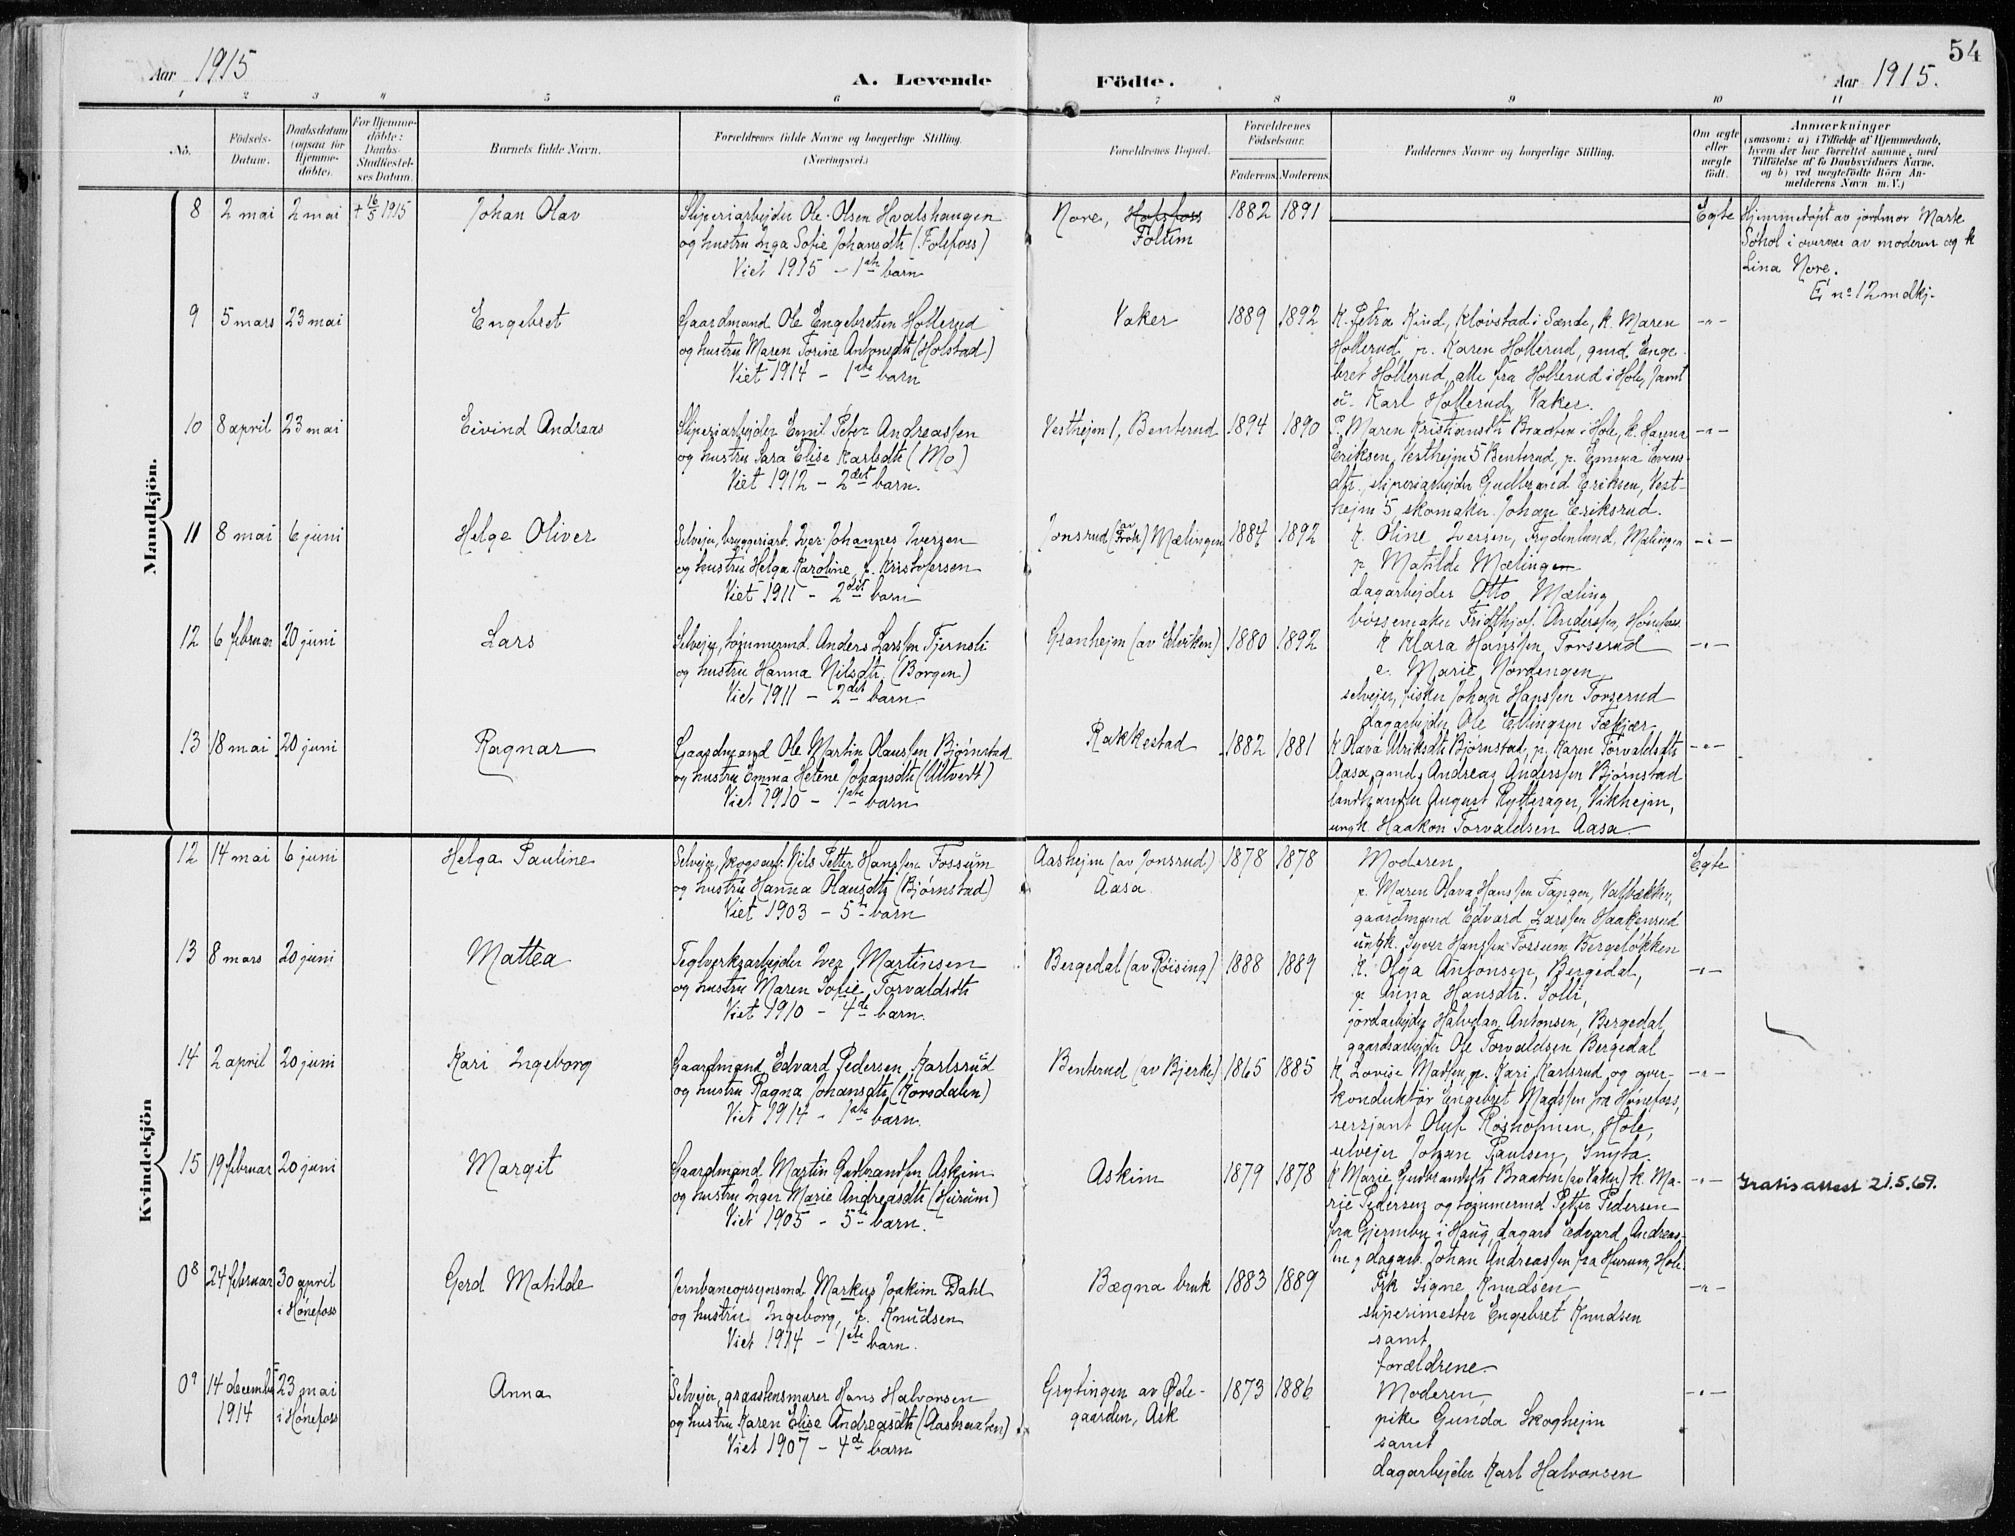 54
Aar 1915
A. Levende Födte.
Aar 1915.
1 2 3 4 5 6 7 8 9 10 11
No.
Födsels-Datum.
Daabsdatum (ogsaa for Hjemme-döbte).
For Hjemme-döbte: Daabs-Stadfæstel-ses Datum.
Barnets fulde Navn.
Forældrenes fulde Navne og borgerlige Stilling.
(Næringsvei.)
Forældrenes Bopæl.
Forældrenes Födselsaar.
Faderens. Moderens.
Faddernes Navne og borgerlige Stilling.
Om ægte eller uægte födt.
Anmærkninger
(saasom: a) i Tilfælde af Hjemmedaab, hvem der har forrettet samme, med Tilföielse af to Daabsvidners Navne, og b) ved uægtefödte Börn An-melderens Navn m. V.)
Mandkjön.
8 2 mai 2 mai + 16/5 1915 Johan Olav
Sliperiarbejder Ole Olsen Hvalshaugen
og hustru Inga Sofie Johansdtr (Folsfoss)
Viet 1915 - 1ste barn
Nore, Hofsfoss
Follum
1882 1891
Egte
Hjemmedøpt av jordmor Marte
Søhol i overvær av moderen og k
Lina Nore.
E no 12 mdkj.
9 5 mars 23 mai Engebret
Gaardmand Ole Engebretsen Hollerud
og hustru Maren Torine Antonsdtr (Holstad)
Viet 1914 - 1ste barn
Vaker 1889 1892
K. Petra Kind, Klovstad i Sande, k. Maren
Hollerud, p. Karen Hollerud, gmd Enge-
bret Hollerud, alle fra Hollerud i Hole, samt
u. Karl Hollerud, Vaker.
-"-
10 8 april 23 mai Eivind Andreas
Sliperiarbejder Emil Peter Andreassen
og hustru Sara Elise Karlsdtr (Mo)
Viet 1912 - 2det barn.
Vesthejm 1, Benterud 1894 1890
P. Maren Kristiansdtr Braaten i Hole, k. Hanna
Eriksen, Vesthejm 5 Benterud, p. Emma Evens-
dtr. sliperiarbejder Gudbrand Eriksen, Vest-
hejm 5, skomaker Johan Eriksrud.
-"-
11 8 mai 6 juni Helge Oliver
Selvejer, bryggeriarb. Iver Johannes Iversen
og hustru Helga Karoline, f. Kristofersen
Viet 1911 - 2det barn
Jonsrud (av Frøh) Mælingen 1884 1892
K. Oline Iversen, Frydenlund, Mælingen
p. Matilde Mælingen
dagarbejder Otto Mæling
bøssemaker Fridthjof Andersen, Hønefoss
-"-
12 6 februar 20 juni Lars
Selvejer, tømmermd. Anders Larssen Tjernsli
og hustru Hanna Nilsdtr. (Borgen)
Viet 1911 - 2det barn
Granhejm (av Elviken) 1880 1892
K Klara Hanssen Torserud
e. Marie Nordengen
selvejer, fisker Johan Hanssen Torserud
dagarbejder Ole Ellingsen Fækjær
-"-
13 18 mai 20 juni Ragnar
Gaardmand Ole Martin Olaussen Bjørnstad
og hustru Emma Helene Johansdtr (Ultvedt)
Viet 1910 - 1ste barn
Rakkestad 1882 1881
K Olava Ulriksdtr Bjørnstad, p. Karen Torvaldsdtr
Aasa, gmd, Andreas Anderssen Bjørnstad
landhandler August Rytterager, Vikhejm,
ungk. Haakon Torvaldsen Aasa.
-"-
Kvindekjön
12 14 mai 6 juni Helga Pauline
Selvejer, skogsarb. Nils Petter Hanssen Fossum
og hustru Hanna Olausdtr (Bjørnstad)
Viet 1903 - 5te barn
Aashejm (av Jonsrud)
Aasa
1878 1878
Moderen
p. Maren Olava Hanssen Tangen,
gaardmand Edvard Larssen Haakenrud
ungk. Syver Hanssen Fossum Bergeløkken
Egte
13 8 mars 20 juni Mattea
Teglverksarbejder Iver Martinsen
og hustru Maren Sofie Torvaldsdtr
Viet 1910 - 4de barn.
Bergedal (av Røising) 1888 1889
K. Olga Antonsen, Bergedal,
p. Anna Hansdtr. Solli,
jordarbejder Halvdan Antonsen, Bergedal
gaardsarbejder Ole Torvaldsen Bergedal
-"-
14 2 april 20 juni Kari Ingeborg
Gaardmand Edvard Pedersen Karlsrud
og hustru Ragna Johansdtr (Korsdalen)
Viet 1914 - 1ste barn.
Benterud (av Bjerke) 1865 1885
K Lovise Madsen, p. Kari Karlsrud og over-
konduktør Engebret Madssen fra Hønefoss,
sersjant Oluf Rosholmen, Hole,
selvejer Johan Paulsen, Snyta.
-"-
15 19 februar 20 juni Margit
Gaardmand Martin Gudbrandsen Askim
og hustru Inger Marie Andreasdtr (Hurum)
Viet 1905 - 5te barn.
Askim 1879 1878
K Marie Gudbrandsdtr Braaten (av Vaker) k. Ma-
rie Pedersen og tømmermd Petter Pedersen
fra Gjermbu i Haug, dagarb Edvard Andreas-
sen, dagarb. Johan Andreassen fra Hurum, Hole
-"-
Gratis attest 21.5.69.
08 24 februar 30 april i Hønefoss Gerd Matilde
Jernbaneopsynsmd Markus Joakim Dahl
og hustru Ingeborg, f. Knudsen
Viet 1914 - 1ste barn.
Bægna bruk 1883 1889
Frk Signe Knudsen
sliperimester Engebret Knudsen
samt
forældrene.
-"-
09 14 december 1914 23 mai i Hønefoss Anna
Selvejer, graastensmurer Hans Halvorsen
og hustru Karen Elise Andreasdtr (Aasbraaten)
Viet 1907 - 4de barn
Grytingen av Øde-
gaarden, Ask
1873 1886
Moderen
pike Gunda Skoghejm
samt
dagarbejder Karl Halvorsen
-"-